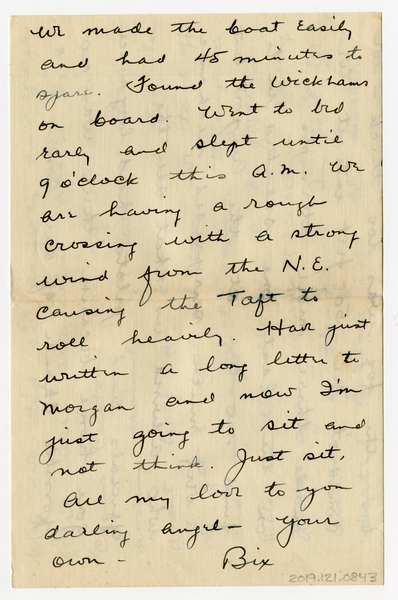 We made the boat easily
and had 45 minutes to
spare. Found the Wickhams
on board. Went to bed
early and slept until
9 o'clock this A.M. We
are having a rough
crossing with a strong
wind from the N.E.
causing the Taft to
roll heavily. Have just
written a long letter to
Morgan and now I'm
just going to sit and
not think. Just sit.
All my love to you
darling angel - Your
own - Bix
2019.121.0843